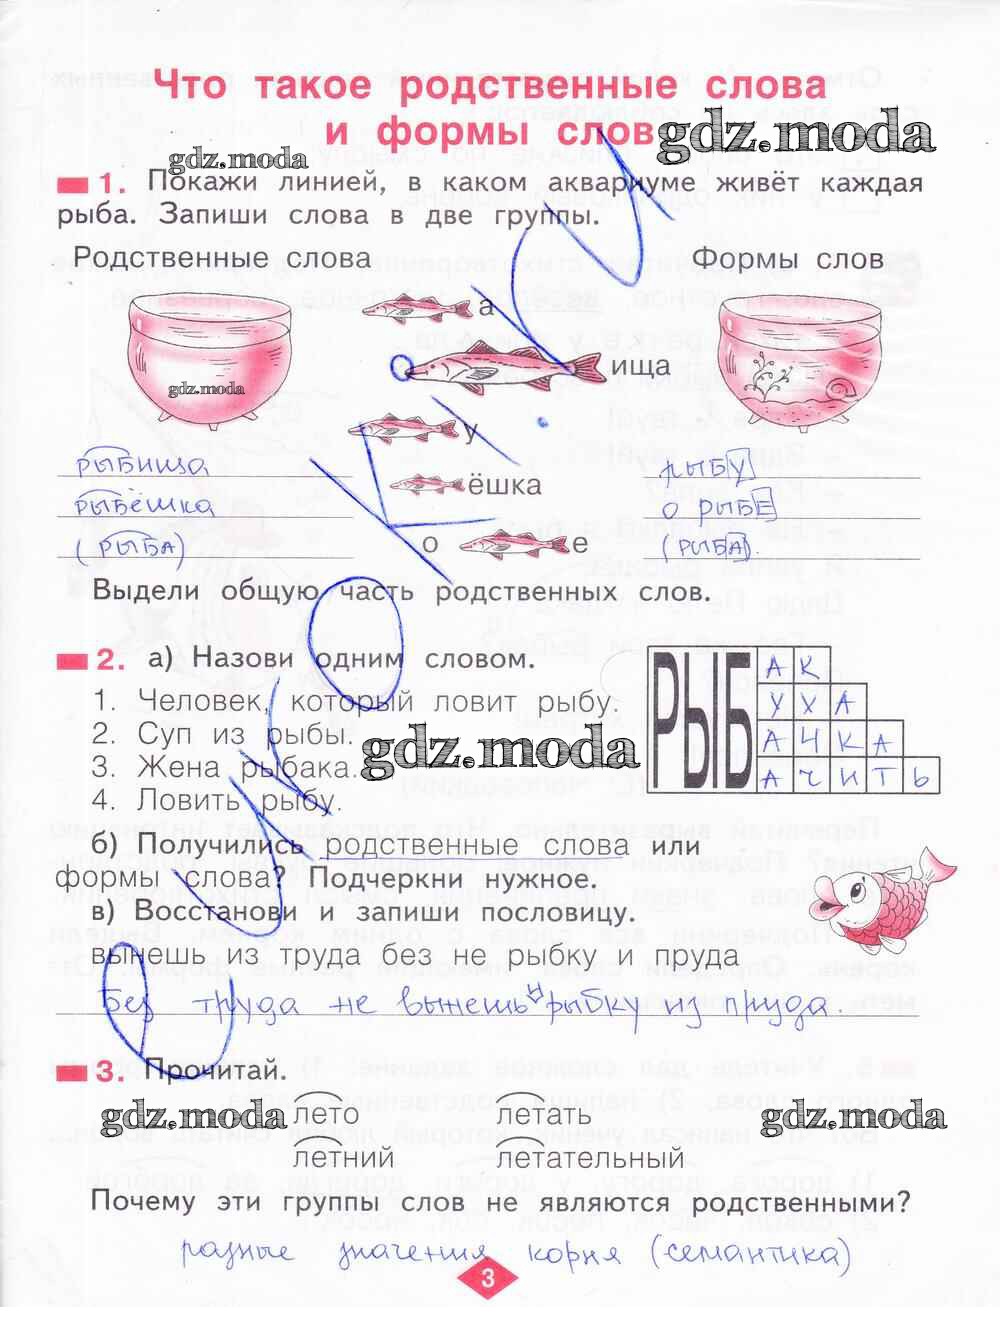 Что такое родственные слова
и формы слов
gdz.moda
gdz.moda
1. Покажи линией, в каком аквариуме живёт каждая
рыба. Запиши слова в две группы.
Родственные слова
Формы слов
а
ища
gdz.moda
у
ёшка
о е
рыбища
рыбёшка
(рыба)
рыбу
о рыбе
(рыба).
Выдели общую часть родственных слов.
2. а) Назови одним словом.
1. Человек, который ловит рыбу.
2. Суп из рыбы.
3. Жена рыбака.
4. Ловить рыбу.
gdz.moda
РЫБ
АК
УХА
АЧКА
АЧИТЬ
б) Получились родственные слова или
формы слова? Подчеркни нужное.
в) Восстанови и запиши пословицу.
вынешь из труда без не рыбку и пруда
Без труда не вынешь и рыбку из пруда.
3. Прочитай.
gdz.moda
лето летать
gdz.moda
летний летательный
Почему эти группы слов не являются родственными?
разные значения корня (семантика)
3